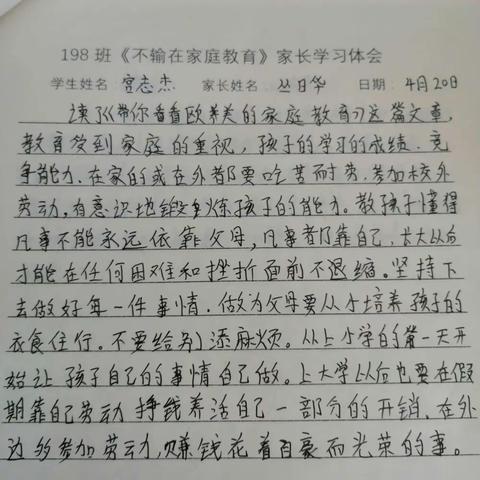 198班《不输在家庭教育》家长学习体会
学生姓名：宫志杰 家长姓名：丛日华 日期：4月20日
读了《带你看看欧美的家庭教育》这篇文章，
教育受到家庭的重视，孩子的学习的成绩、竞
争能力、在家的或在外都要吃苦耐劳，参加校外
劳动，有意识地锻炼孩子的能力。教孩子懂得
凡事不能永远依靠父母，凡事都靠自己，长大以后
才能在任何困难和挫折面前不退缩。坚持下
去做好每一件事情。做为父母要从小培养孩子的
衣食住行。不要给别添麻烦。从上小学的第一天开
始让孩子自己的事情自己做。上大学以后也要在假
期靠自己劳动挣钱养活自己一部分的开销，在外
边多参加劳动，赚钱花着自豪而光荣的事。